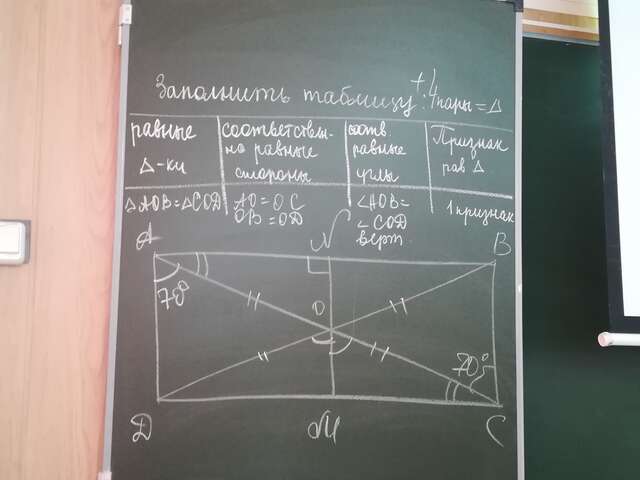 Заполнить таблицу: +4 пары = Δ
равные Δ-ки
соответствен-но равные стороны
соотв. равные углы
Признак рав Δ
ΔAOB=ΔCOD
AO=OC
OB=OD
∠AOB=
∠COD
верт.
1 признак
A N B
78°
O
70°
D M C